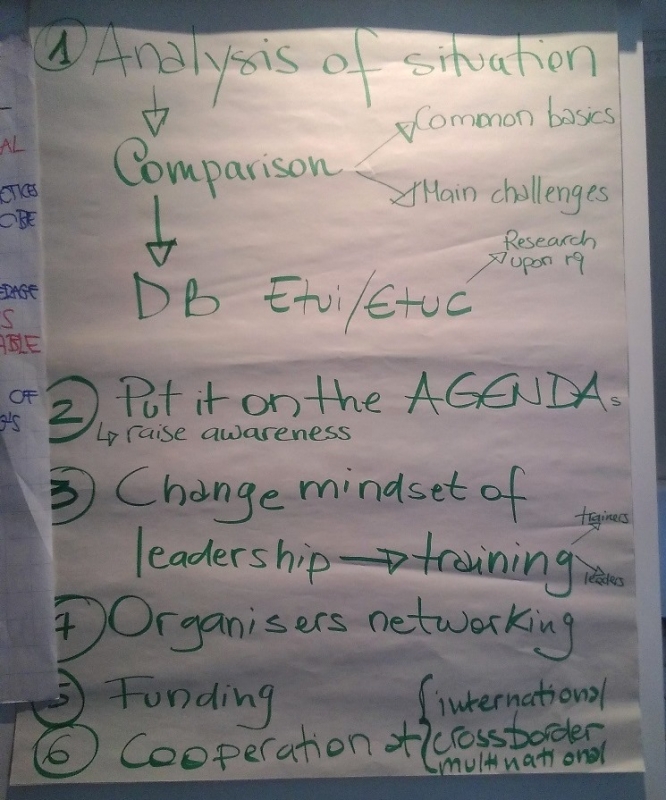 AL
OBE
S
ABLE
OF
① Analysis of situation
Comparison
Common basics
Main challenges
DB Etui/Etuc
Research
upon rq
② Put it on the AGENDAs
raise awareness
③ Change mindset of
leadership → training
trainers
leaders
④ Organisers networking
⑤ Funding
⑥ Cooperation at
international
crossborder
multinational